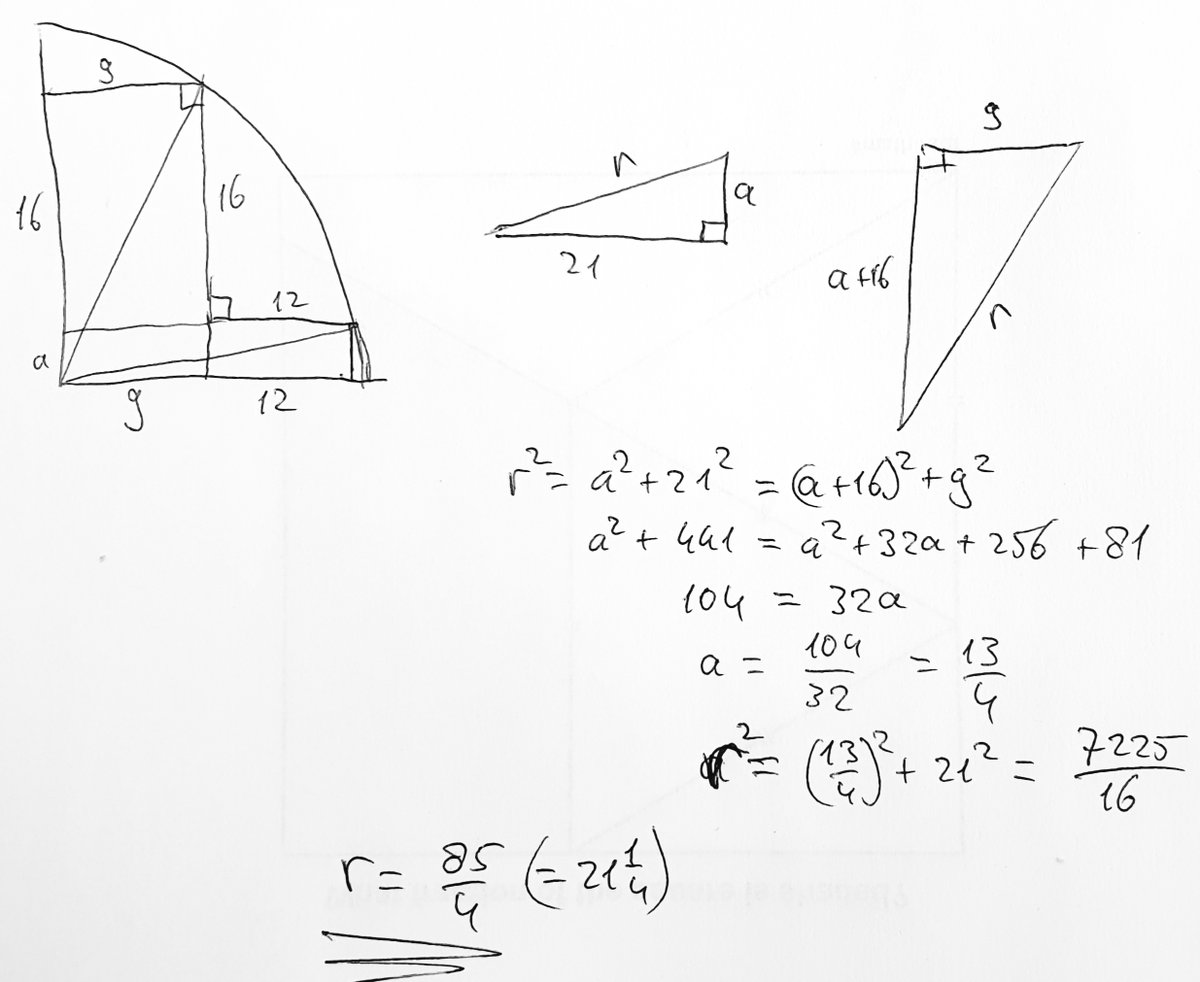 9
16
16
12
a
9
12
r
a
21
9
a+16
r
r² = a² + 21² = (a+16)² + 9²
a² + 441 = a² + 32a + 256 + 81
104 = 32a
a = 104/32 = 13/4
r² = (13/4)² + 21² = 7225/16
r = 85/4 (= 21 1/4)